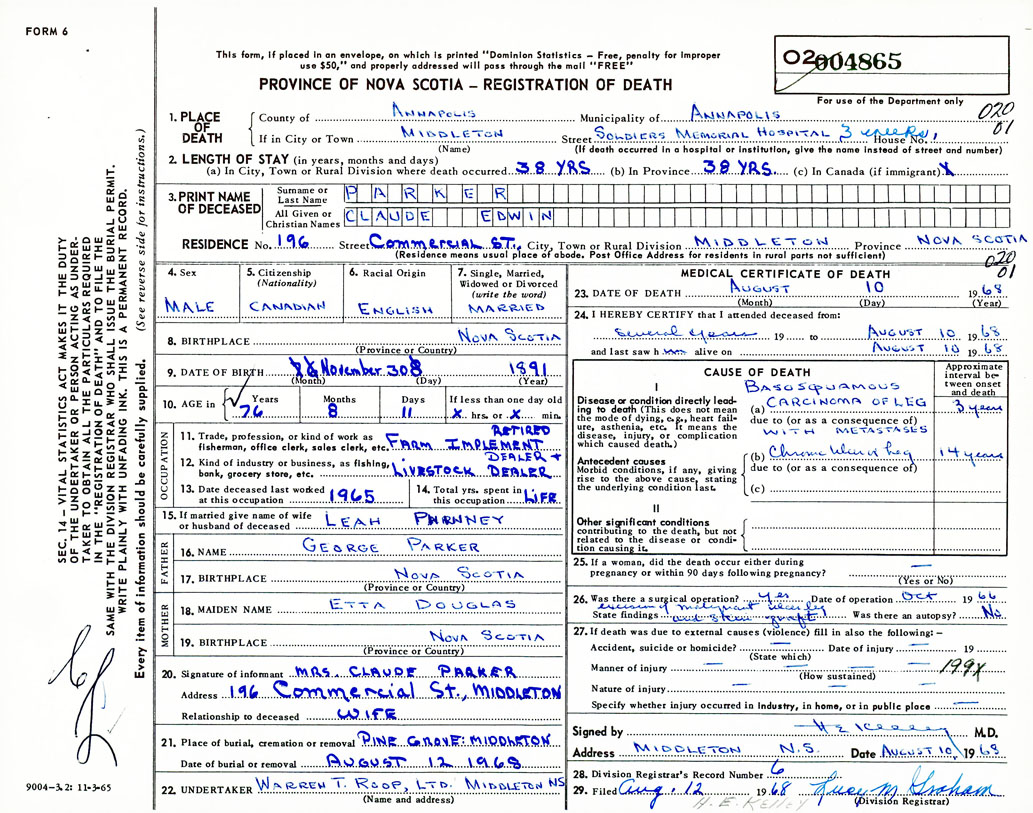 FORM 6
This form, if placed in an envelope, on which is printed "Dominion Statistics – Free, penalty for improper
use $50," and properly addressed will pass through the mail "FREE"
PROVINCE OF NOVA SCOTIA – REGISTRATION OF DEATH
02 004865
For use of the Department only
020
01
1. PLACE OF DEATH
County of ANNAPOLIS Municipality of ANNAPOLIS
If in City or Town MIDDLETON Street SOLDIERS MEMORIAL HOSPITAL 3 weeks, House No.
(Name) (If death occurred in a hospital or institution, give the name instead of street and number)
2. LENGTH OF STAY (in years, months and days)
(a) In City, Town or Rural Division where death occurred 38 YRS (b) In Province 38 YRS. (c) In Canada (if immigrant) X
3. PRINT NAME OF DECEASED
Surname or Last Name PARKER
All Given or Christian Names CLAUDE EDWIN
RESIDENCE No. 196 Street Commercial St., City, Town or Rural Division MIDDLETON Province NOVA SCOTIA
(Residence means usual place of abode. Post Office Address for residents in rural parts not sufficient)
020
01
4. Sex
MALE
5. Citizenship
(Nationality)
CANADIAN
6. Racial Origin
ENGLISH
7. Single, Married,
Widowed or Divorced
(write the word)
MARRIED
8. BIRTHPLACE NOVA SCOTIA
(Province or Country)
9. DATE OF BIRTH November 30 1891
(Month) (Day) (Year)
10. AGE in Years Months Days If less than one day old
76 8 11 X hrs. or X min.
OCCUPATION
11. Trade, profession, or kind of work as
fisherman, office clerk, sales clerk, etc. RETIRED FARM IMPLEMENT
12. Kind of industry or business, as fishing,
bank, grocery store, etc. DEALER + LIVESTOCK DEALER
13. Date deceased last worked
at this occupation 1965
14. Total yrs. spent in
this occupation LIFE
15. If married give name of wife
or husband of deceased LEAH
FATHER
16. NAME GEORGE PARKER
17. BIRTHPLACE NOVA SCOTIA
(Province or Country)
MOTHER
18. MAIDEN NAME ETTA DOUGLAS
19. BIRTHPLACE NOVA SCOTIA
(Province or Country)
20. Signature of informant MRS. CLAUDE PARKER
Address 196 Commercial St., MIDDLETON
Relationship to deceased WIFE
21. Place of burial, cremation or removal PINE GROVE: MIDDLETON
Date of burial or removal AUGUST 12 1968
22. UNDERTAKER WARREN T. ROOP, LTD. MIDDLETON NS
(Name and address)
MEDICAL CERTIFICATE OF DEATH
23. DATE OF DEATH AUGUST 10 1968
(Month) (Day) (Year)
24. I HEREBY CERTIFY that I attended deceased from:
Several Years 19 to AUGUST 10 1968
and last saw h alive on AUGUST 10 1968
CAUSE OF DEATH
Approximate interval between onset and death
I
Disease or condition directly leading to death (This does not mean the mode of dying, e.g., heart failure, asthenia, etc. It means the disease, injury, or complication which caused death.)
BASOSQUAMOUS
(a) CARCINOMA OF LEG 3 years
due to (or as a consequence of)
WITH METASTASES
Antecedent causes
Morbid conditions, if any, giving rise to the above cause, stating the underlying condition last.
(b) Chronic Ulcer of Leg 14 years
due to (or as a consequence of)
(c)
II
Other significant conditions
contributing to the death, but not related to the disease or condition causing it.
25. If a woman, did the death occur either during
pregnancy or within 90 days following pregnancy? —
(Yes or No)
26. Was there a surgical operation? yes Date of operation Oct 1966
State findings excision of malignant and skin graft Was there an autopsy? No
27. If death was due to external causes (violence) fill in also the following: –
Accident, suicide or homicide? — Date of injury — 19
(State which)
Manner of injury — 199X
(How sustained)
Nature of injury —
Specify whether injury occurred in Industry, in home, or in public place —
Signed by H E Kelley M.D.
Address MIDDLETON N.S. Date AUGUST 10, 1968
28. Division Registrar's Record Number 6
29. Filed Aug. 12 1968 Lucy M Graham
H. E. KELLEY (Division Registrar)
SEC. 14 – VITAL STATISTICS ACT MAKES IT THE DUTY
OF THE UNDERTAKER OR PERSON ACTING AS UNDERTAKER TO OBTAIN ALL THE PARTICULARS REQUIRED
IN THE "REGISTRATION OF DEATH" AND TO FILE THE
SAME WITH THE DIVISION REGISTRAR WHO SHALL ISSUE THE BURIAL PERMIT.
WRITE PLAINLY WITH UNFADING INK. THIS IS A PERMANENT RECORD.
Every item of information should be carefully supplied. (See reverse side for instructions.)
9004-3.2: 11-3-65